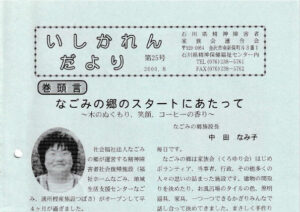 いしかれん
だより
第25号
2000.8
石川県精神障害者
家族会連合会
石川県精神保健福祉センター内
TEL(076)238-5761
FAX(076)238-5762
巻頭言
なごみの郷のスタートにあたって
～木のぬくもり、笑顔、コーヒーの香り～
なごみの郷施設長
中田 なみ子
社会福祉法人なごみ
の郷が運営する精神障
害者社会復帰施設（福
祉ホームなごみ、地域
生活支援センターなご
み、通所授産施設つばさ）がオープンして早
4ヶ月が過ぎました。
毎日です。
なごみの郷は家族会（くろゆり会）はじめ
ボランティア、当事者、行政、その他多くの
人々の思いの詰まった施設です。建物の間取
りを決めたり、お風呂場のタイルの色、照明
器具、家具、一つ一つできるかぎりみんなで
話し合って決めてまいりました。